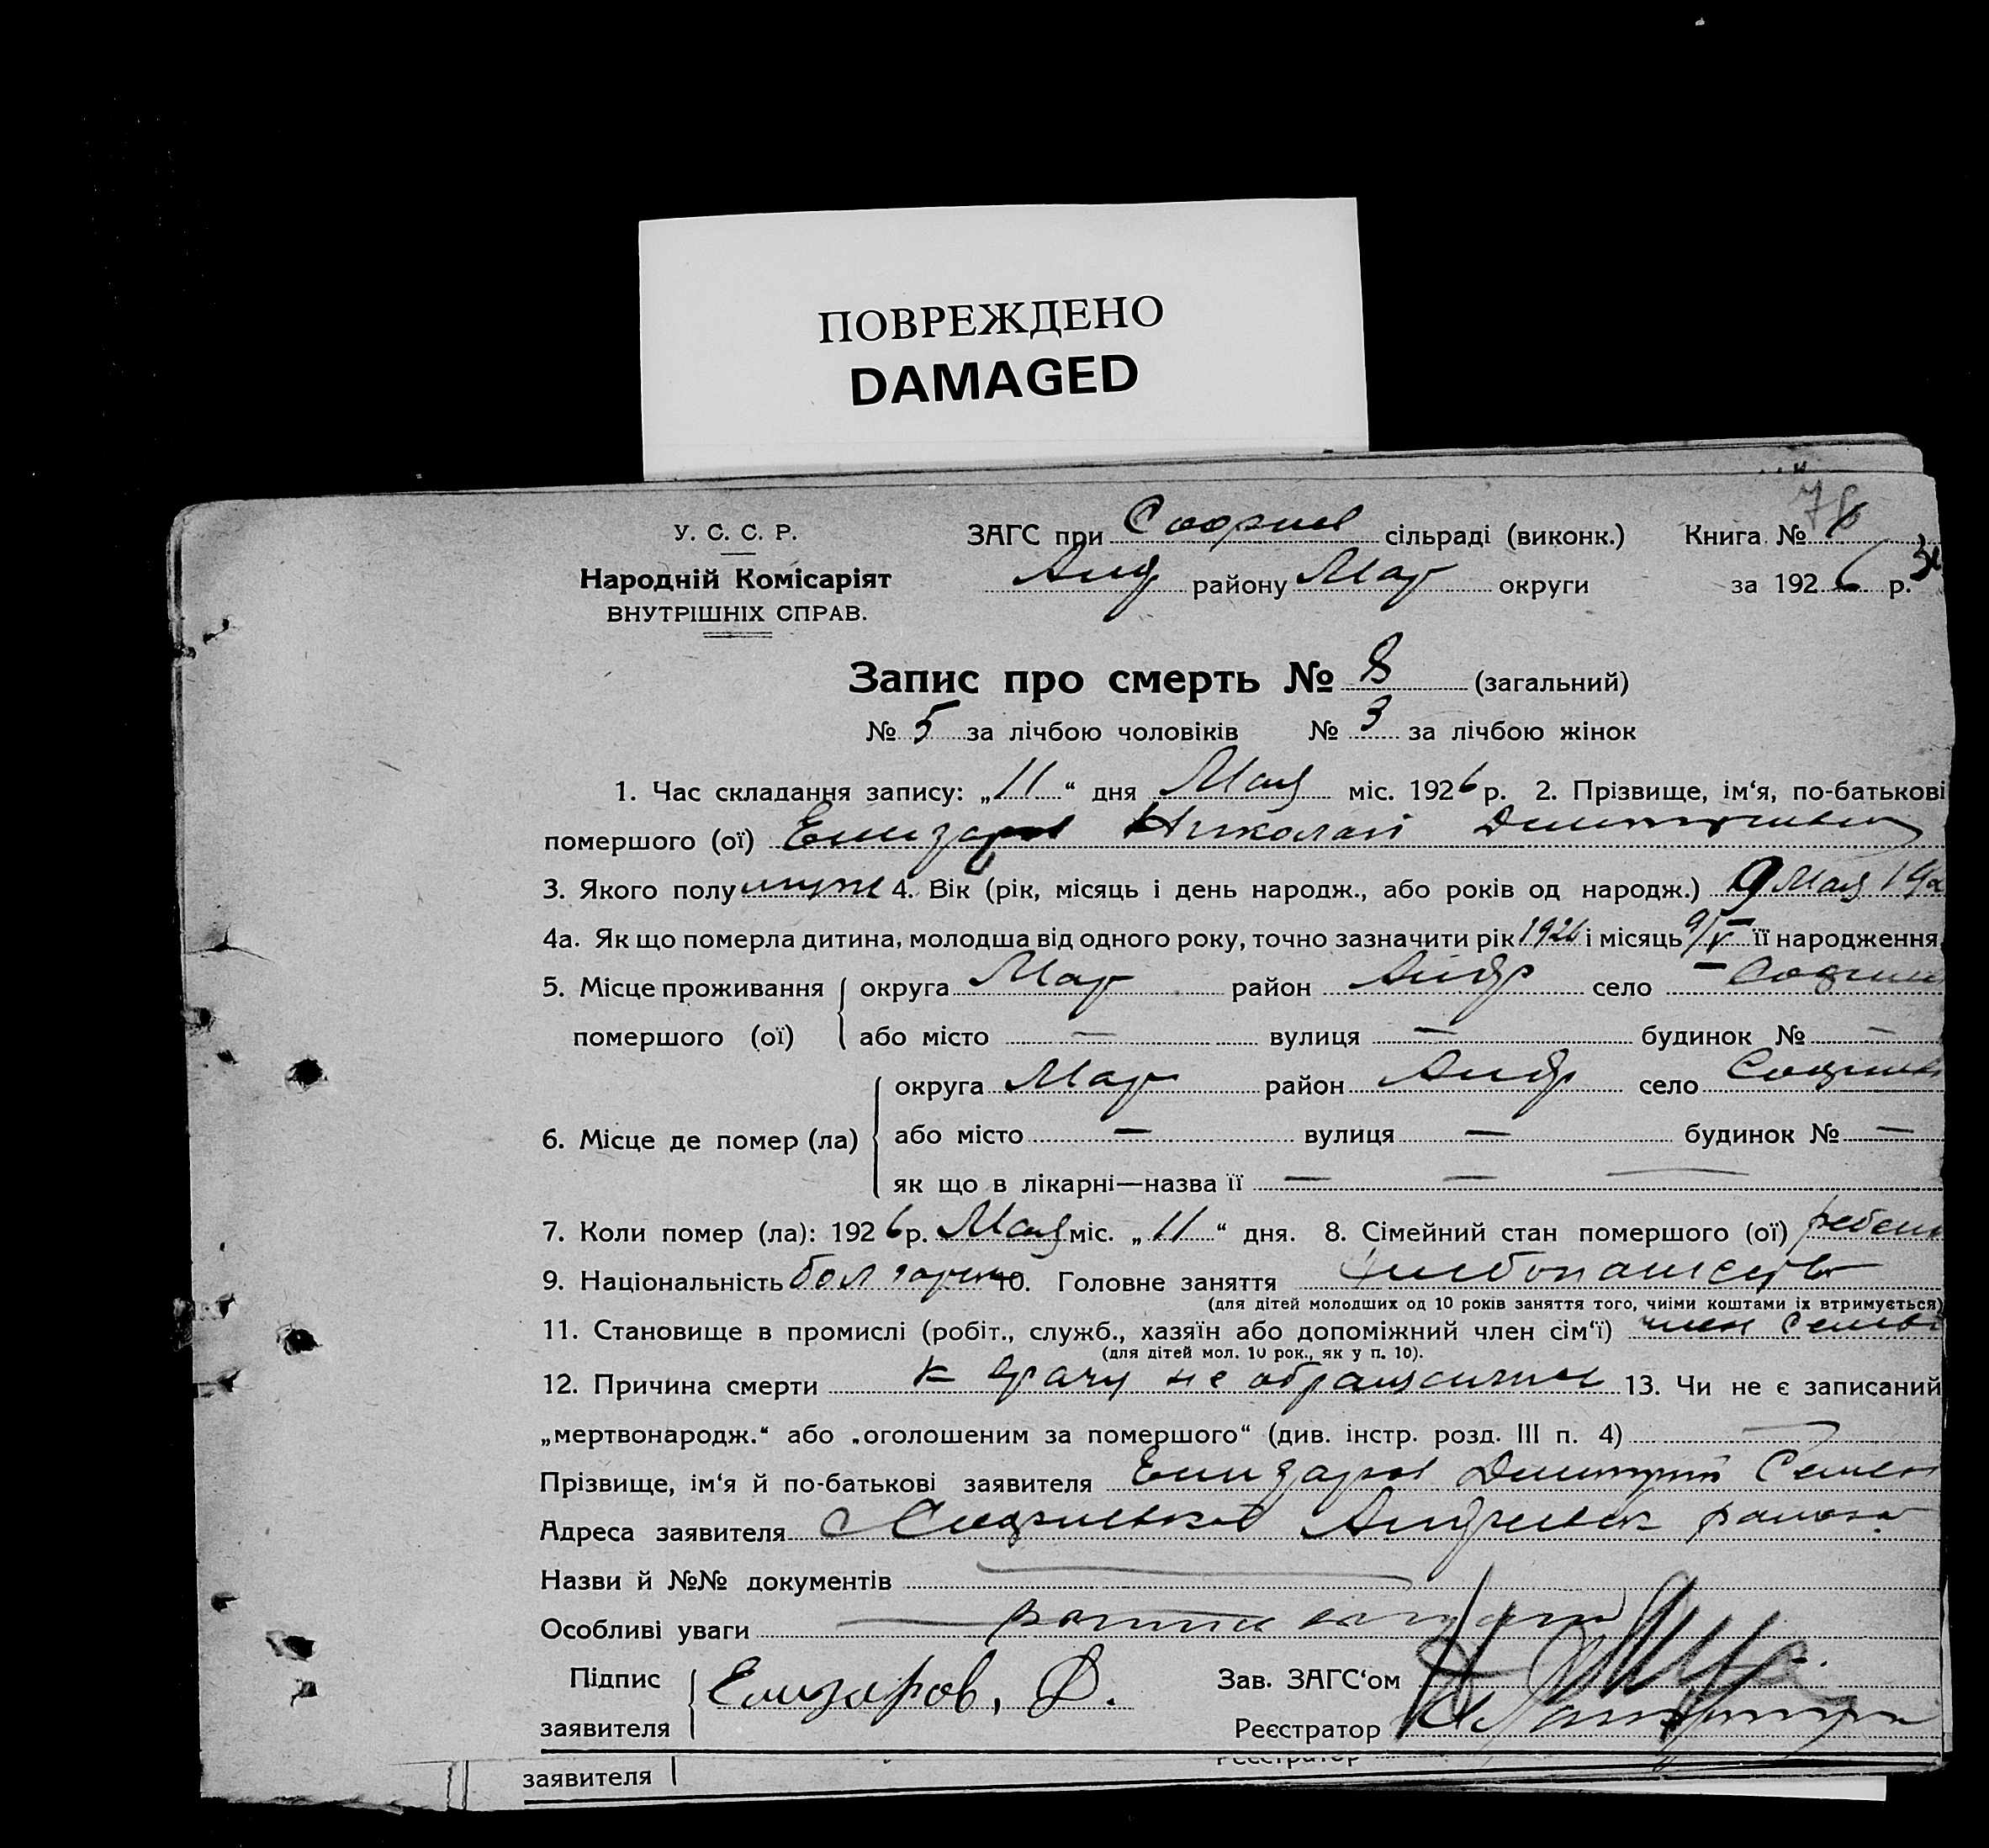 ПОВРЕЖДЕНО
DAMAGED
78
У. С. С. Р.
ЗАГС при Софиев сільраді (виконк.) Книга №
Народній Комісаріят
Анд району Мар округи за 1926 р.
ВНУТРІШНІХ СПРАВ.
Запис про смерть № 8 (загальний)
№ 5 за лічбою чоловіків № 3 за лічбою жінок
1. Час складання запису: „11“ дня Мая міс. 1926 р. 2. Прізвище, ім‘я, по-батькові
помершого (ої) Елизаров Николай Дмитриевич
3. Якого полу муж 4. Вік (рік, місяць і день народж., або років од народж.) 9 Мая 192
4а. Як що померла дитина, молодша від одного року, точно зазначити рік 1926 і місяць 9/V її народження
5. Місце проживання округа Мар район Андр село Софиев
помершого (ої) або місто — вулиця — будинок № —
округа Мар район Андр село Софиев
6. Місце де помер (ла) або місто — вулиця — будинок № —
як що в лікарні—назва її — —
7. Коли помер (ла): 1926 р. Мая міс. „11“ дня. 8. Сімейний стан помершого (ої) ребен
9. Національність болгарин 10. Головне заняття хлебопашество
(для дітей молодших од 10 років заняття того, чиїми коштами їх втримується)
11. Становище в промислі (робіт., служб., хазяїн або допоміжний член сім‘ї) член семьи
(для дітей мол. 10 рок., як у п. 10).
12. Причина смерти к врачу не обращались 13. Чи не є записаний
„мертвонародж.“ або „оголошеним за помершого“ (див. інстр. розд. III п. 4) —
Прізвище, ім‘я й по-батькові заявителя Елизаров Дмитрий Семен
Адреса заявителя с Софиевка Андреевск района
Назви й №№ документів —
Особливі уваги —
Підпис Елизаров, Д. Зав. ЗАГС‘ом
заявителя Реєстратор
Реєстратор
заявителя